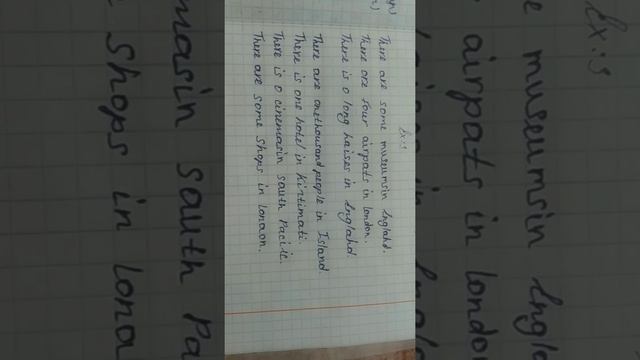 Ex: 5
There are some museumsin Englahd.
There are four airpats in london.
There is a long haises in Englahd
There are onethousand people in Island
There is one hotel in Kirtimati.
There is a cinemasin sauth Pacific.
There are some shops in lonaon.